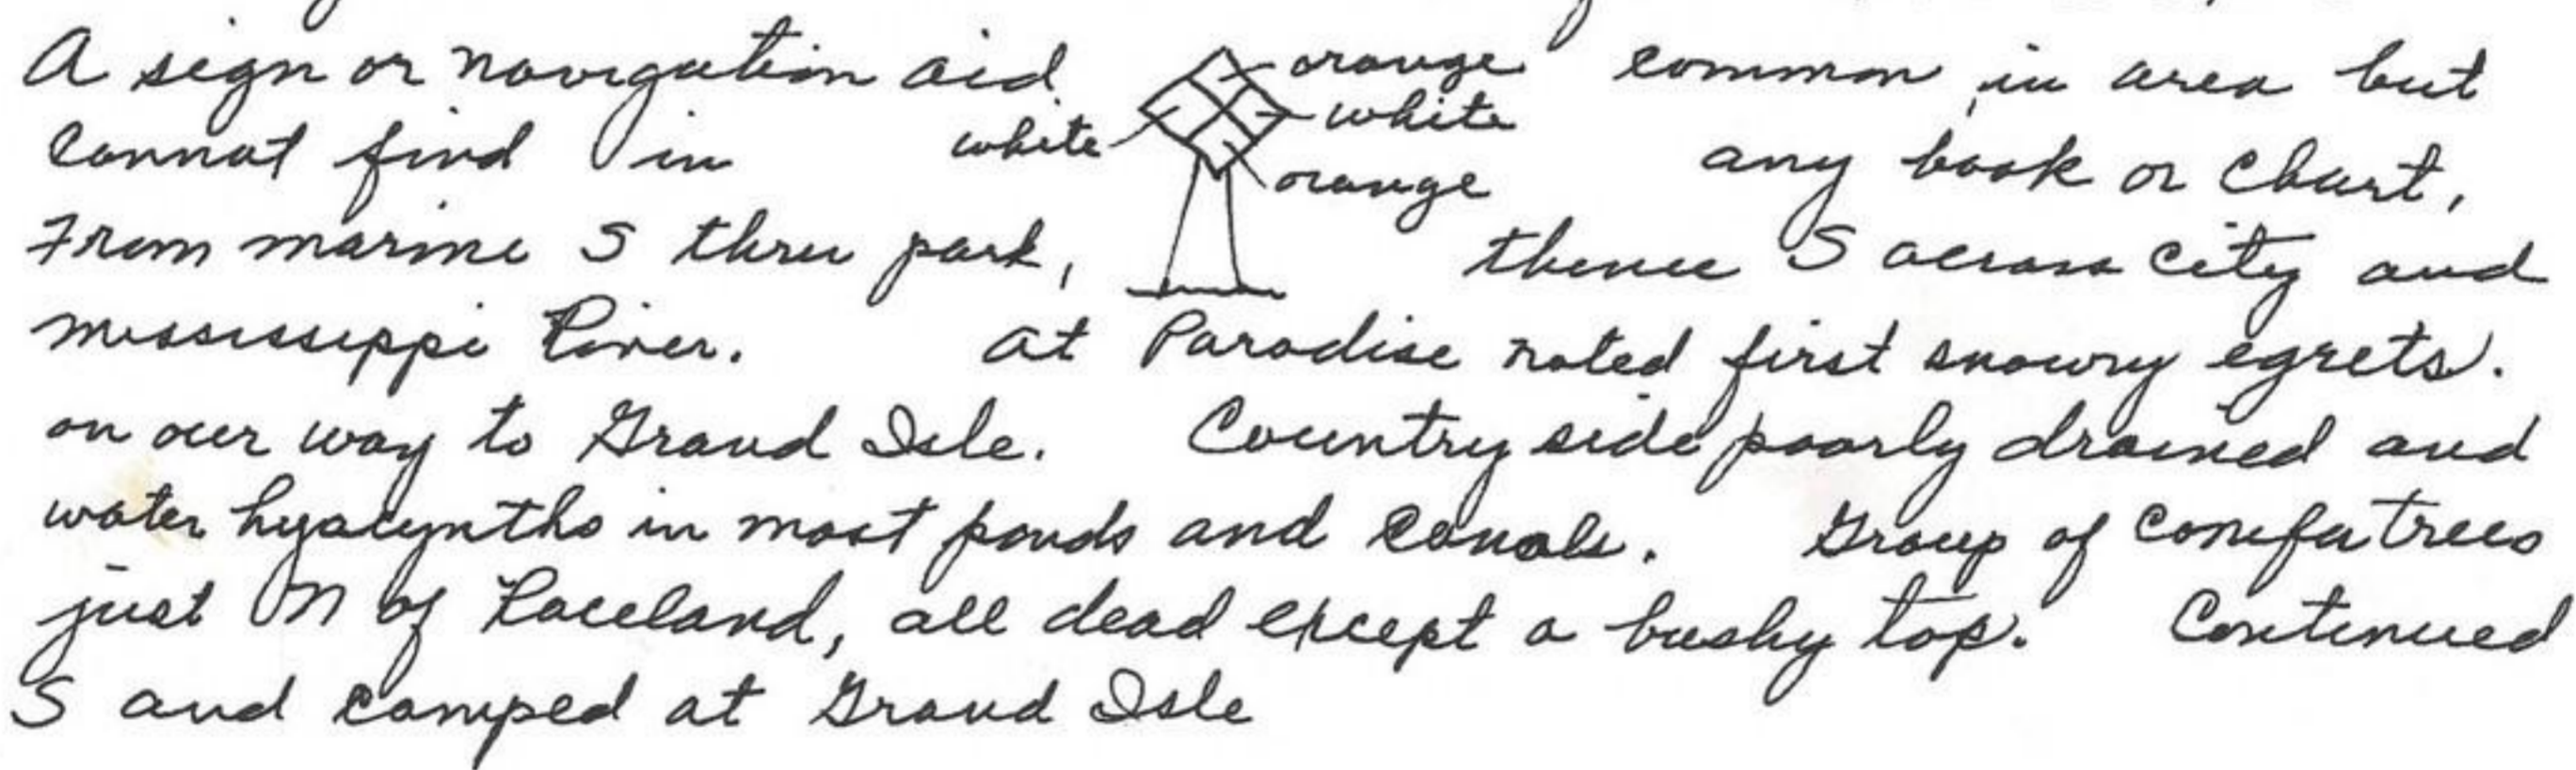 A sign or navigation aid orange common in area but
white
cannot find in white any book or chart,
orange
From marine S thru park, thence S across city and
Mississippi River. At Paradise noted first snowy egrets.
on our way to Grand Isle. Country side poorly drained and
water hyacynths in most ponds and canals. Group of conifer trees
just N of Raceland, all dead except a bushy top. Continued
S and camped at Grand Isle